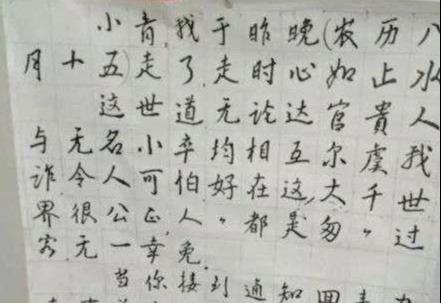 小青我于昨晚(农历八
月十五)走了走时心如止水
这世道无论达官贵人
与无名小卒均相互尔虞我
诈令人可怕好在这大千世
界很公正人〃都是匆〃过
客无一幸免
当你接到通知回